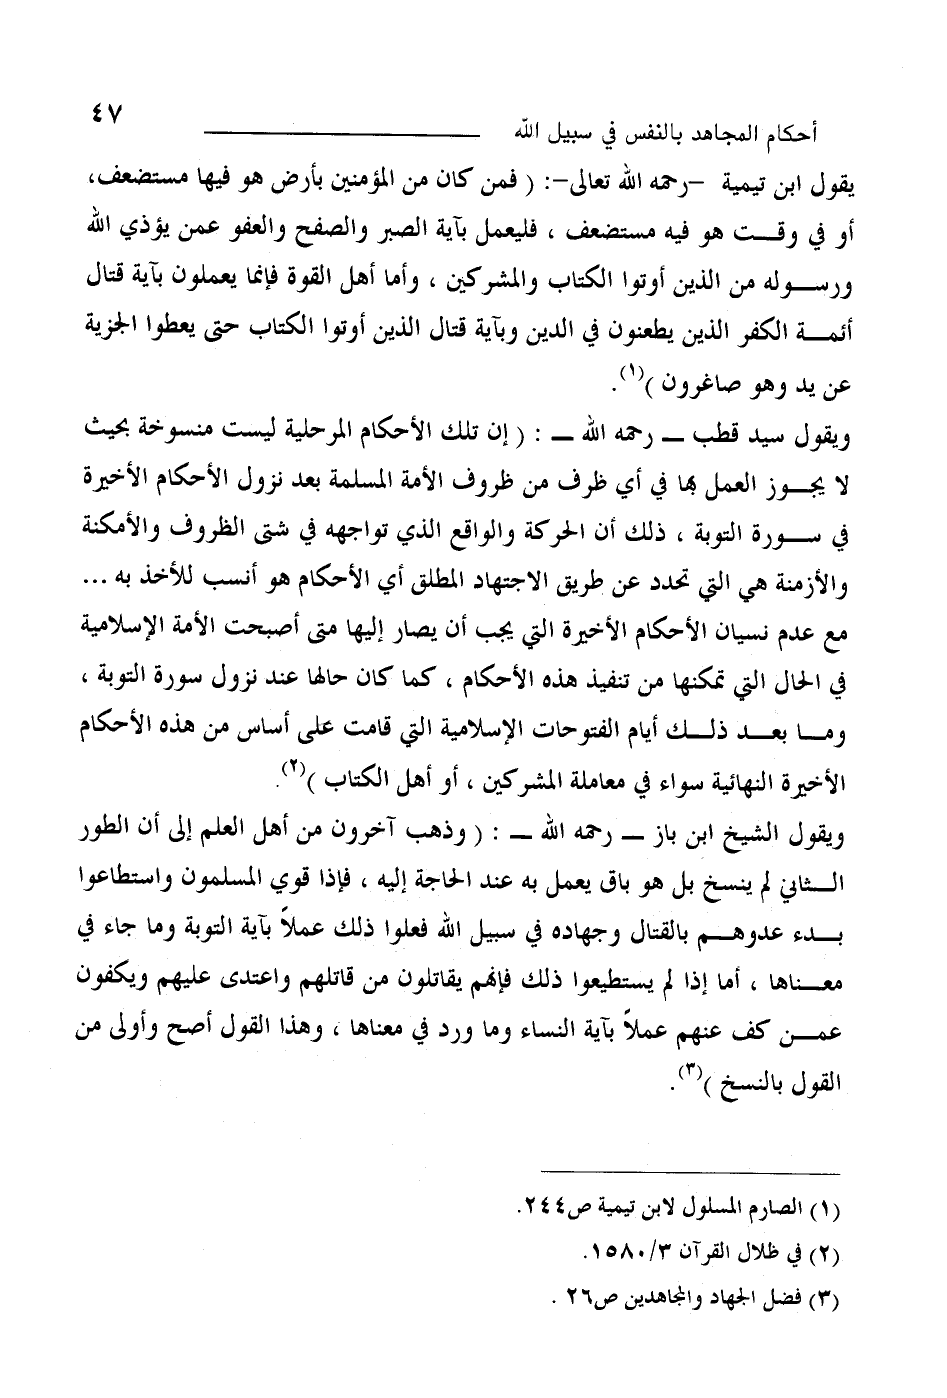 أحكام المجاهد بالنفس في سبيل الله ٤٧
يقول ابن تيمية -رحمه الله تعالى-: ( فمن كان من المؤمنين بأرض هو فيها مستضعف،
أو في وقت هو فيه مستضعف ، فليعمل بآية الصبر والصفح والعفو عمن يؤذي الله
ورسوله من الذين أوتوا الكتاب والمشركين ، وأما أهل القوة فإنما يعملون بآية قتال
أئمة الكفر الذين يطعنون في الدين وبآية قتال الذين أوتوا الكتاب حتى يعطوا الجزية
عن يد وهو صاغرون )(١).
ويقول سيد قطب – رحمه الله – : ( إن تلك الأحكام المرحلية ليست منسوخة بحيث
لا يجوز العمل بها في أي ظرف من ظروف الأمة المسلمة بعد نزول الأحكام الأخيرة
في سورة التوبة ، ذلك أن الحركة والواقع الذي تواجهه في شتى الظروف والأمكنة
والأزمنة هي التي تحدد عن طريق الاجتهاد المطلق أي الأحكام هو أنسب للأخذ به ...
مع عدم نسيان الأحكام الأخيرة التي يجب أن يصار إليها متى أصبحت الأمة الإسلامية
في الحال التي تمكنها من تنفيذ هذه الأحكام ، كما كان حالها عند نزول سورة التوبة ،
وما بعد ذلك أيام الفتوحات الإسلامية التي قامت على أساس من هذه الأحكام
الأخيرة النهائية سواء في معاملة المشركين ، أو أهل الكتاب )(٢).
ويقول الشيخ ابن باز – رحمه الله – : ( وذهب آخرون من أهل العلم إلى أن الطور
الثاني لم ينسخ بل هو باق يعمل به عند الحاجة إليه ، فإذا قوي المسلمون واستطاعوا
بدء عدوهم بالقتال وجهاده في سبيل الله فعلوا ذلك عملاً بآية التوبة وما جاء في
معناها ، أما إذا لم يستطيعوا ذلك فإنهم يقاتلون من قاتلهم واعتدى عليهم ويكفون
عمن كف عنهم عملاً بآية النساء وما ورد في معناها ، وهذا القول أصح وأولى من
القول بالنسخ )(٣).
(١) الصارم المسلول لابن تيمية ص٢٤٤.
(٢) في ظلال القرآن ١٥٨٠/٣.
(٣) فضل الجهاد والمجاهدين ص٢٦ .